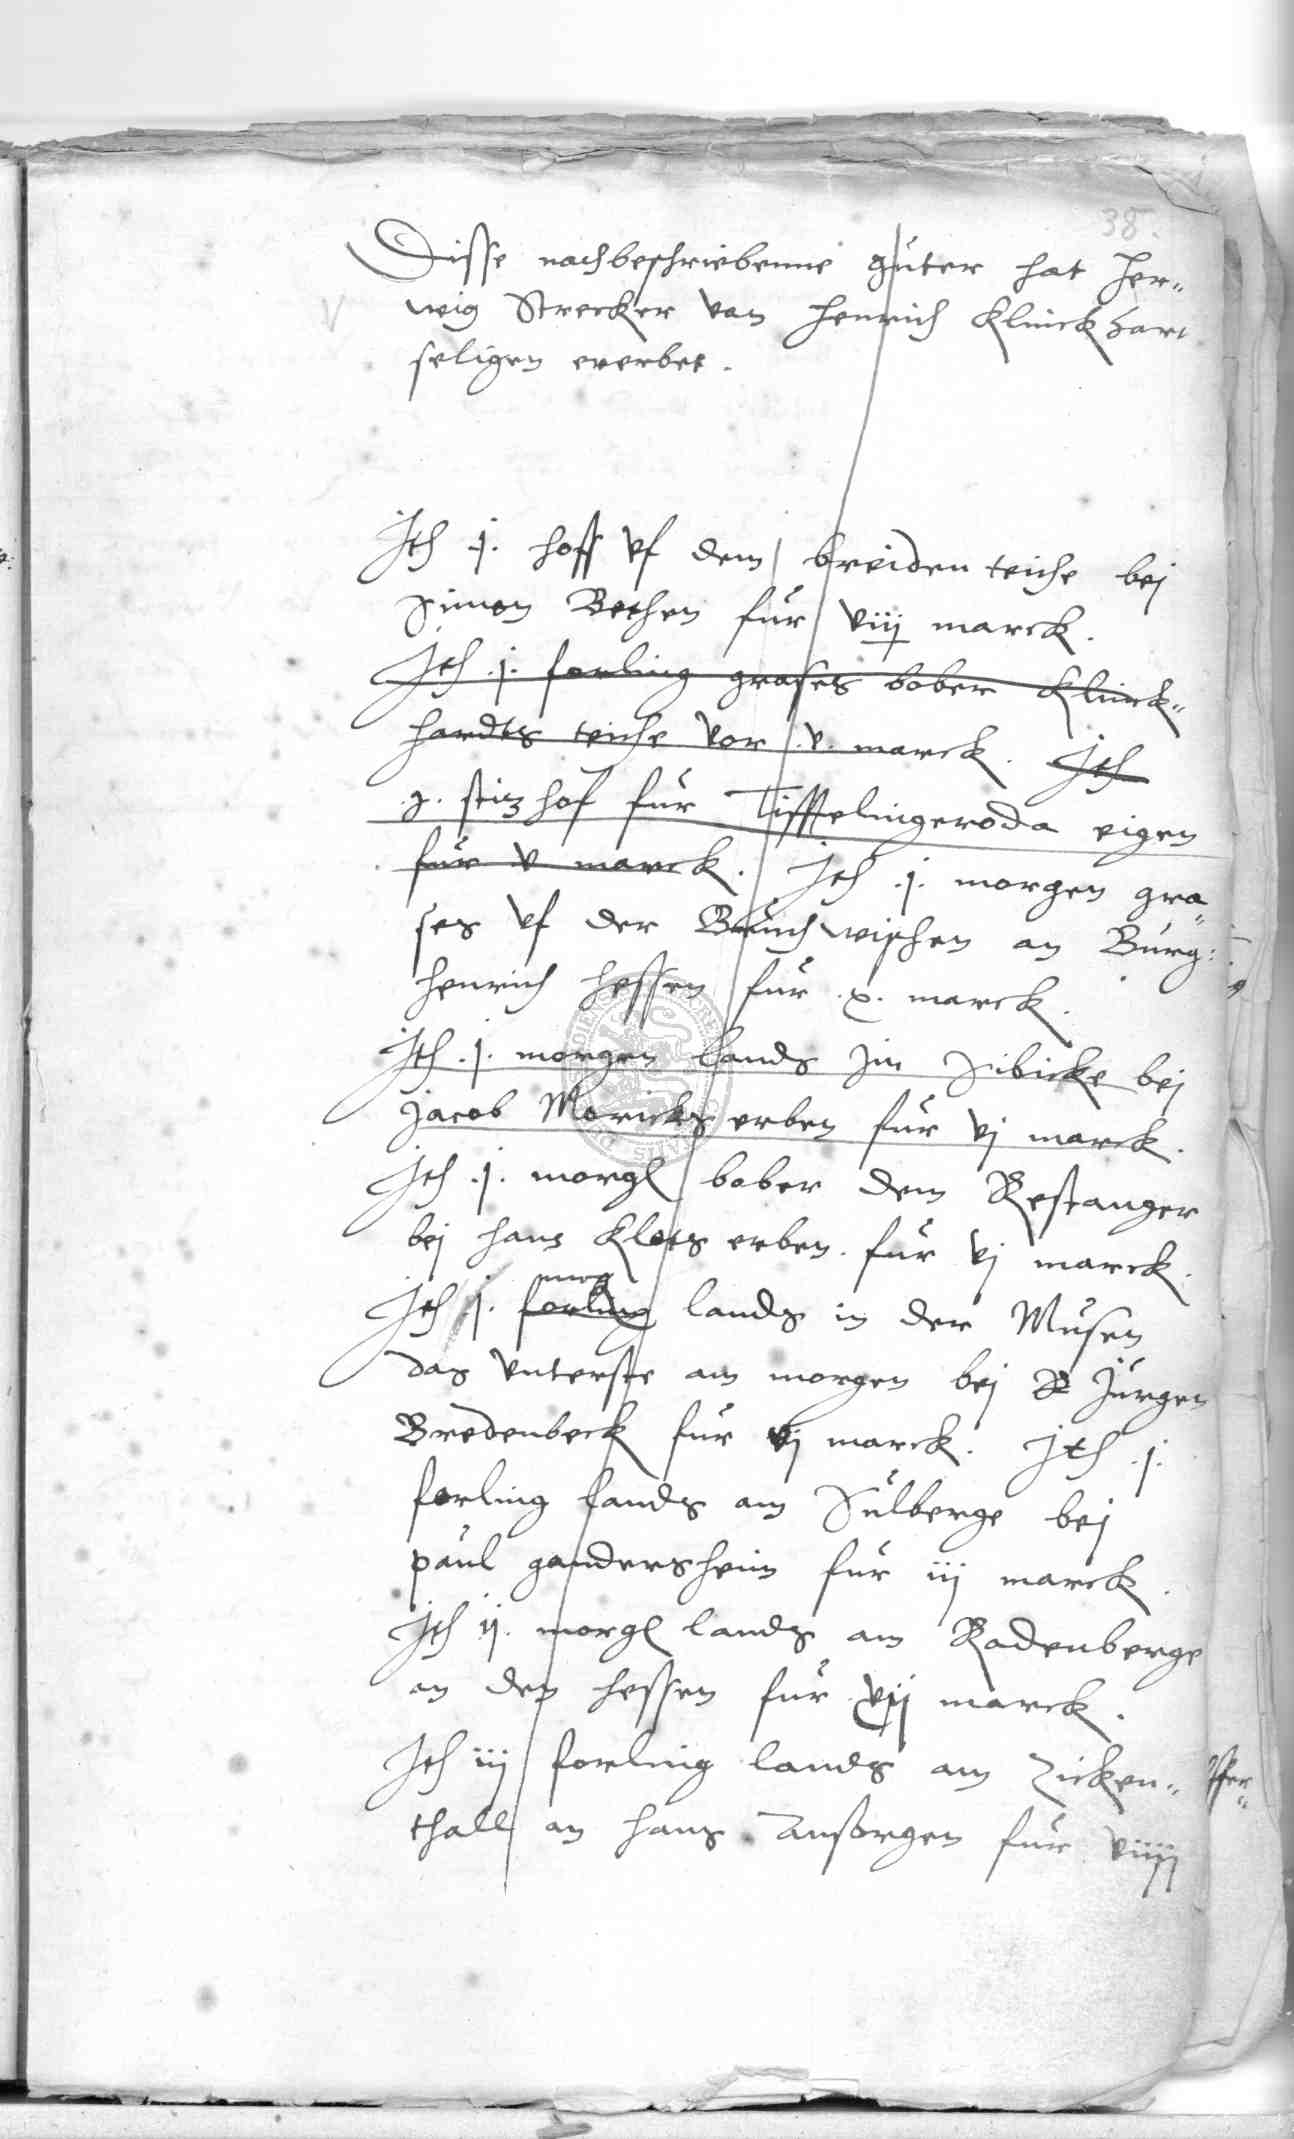 38.
Disse nachbeschriebenne güter hat Her„
wig Strecker van Henrich Klinckhart
seligen ererbet.
Ith .j. hoff vf dem breiden teiche bej
Simon Bethen für viiij marck.
Ith .j. forling grases bober Klinck„
hardts teiche vor .v. marck. Ith
.j. sitzhof für Tisstelingeroda eigen
für v marck. Ith .j. morgen gra„
ses vf der Bruchwischen an Burg:
Henrich Hessen für .x. marck.
Ith .j. morgen lands jn Sibicke bej
Jacob Moricks erben für vj marck.
Ith .j. morgl bober dem Restanger
bej Hans Klots erben für vj marck.
morg
Ith j. forling lands in der Musen
das vnterste am morgen bej Jürgen
Bredenbeck für vj marck. Ith .j.
forling lands am Sülberge bej
paul gandersheim für iij marck.
Ith ij. morgl lands am Radenberge
an den Hessen für vij marck.
Ith iij forling lands am Zicken„
thall an Hans Ansorgen für viiij